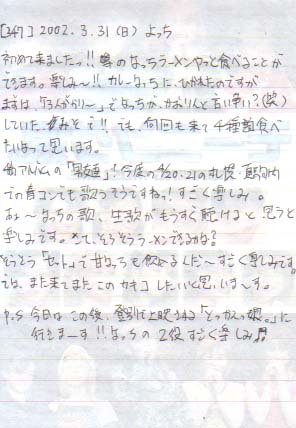 [247] 2002. 3. 31 (日) よっち
初めて来ましたっ!! 噂のなっちラーメンやっと食べることが
できます。楽しみ〜!! カレーなっちに、ひかれたのですが
まずは、
でなっちが、かおりんと言い争い?(笑)
していた、みそで!! でも、何回も来て千種類食べ
たいなって思います。
アルバムの「男友達」! 今度の4/20.21の札幌・真駒内
での春コンでも歌うそうですねっ! すごく楽しみ。
あぁ〜なっちの歌、生歌がもうすぐ聴けると思うと
楽しみです。さて、そろそろラーメンできるかな?
そうそう「セット」で甘なっちも飲めるんだ〜すごく楽しみです。
では、また来てまた、このカキコしたいと思いま〜す。
P.S 今日は この後、登別で上映される「とっかえっ娘。」に
行きまーす!! なっちの 2役 すごく楽しみ♬